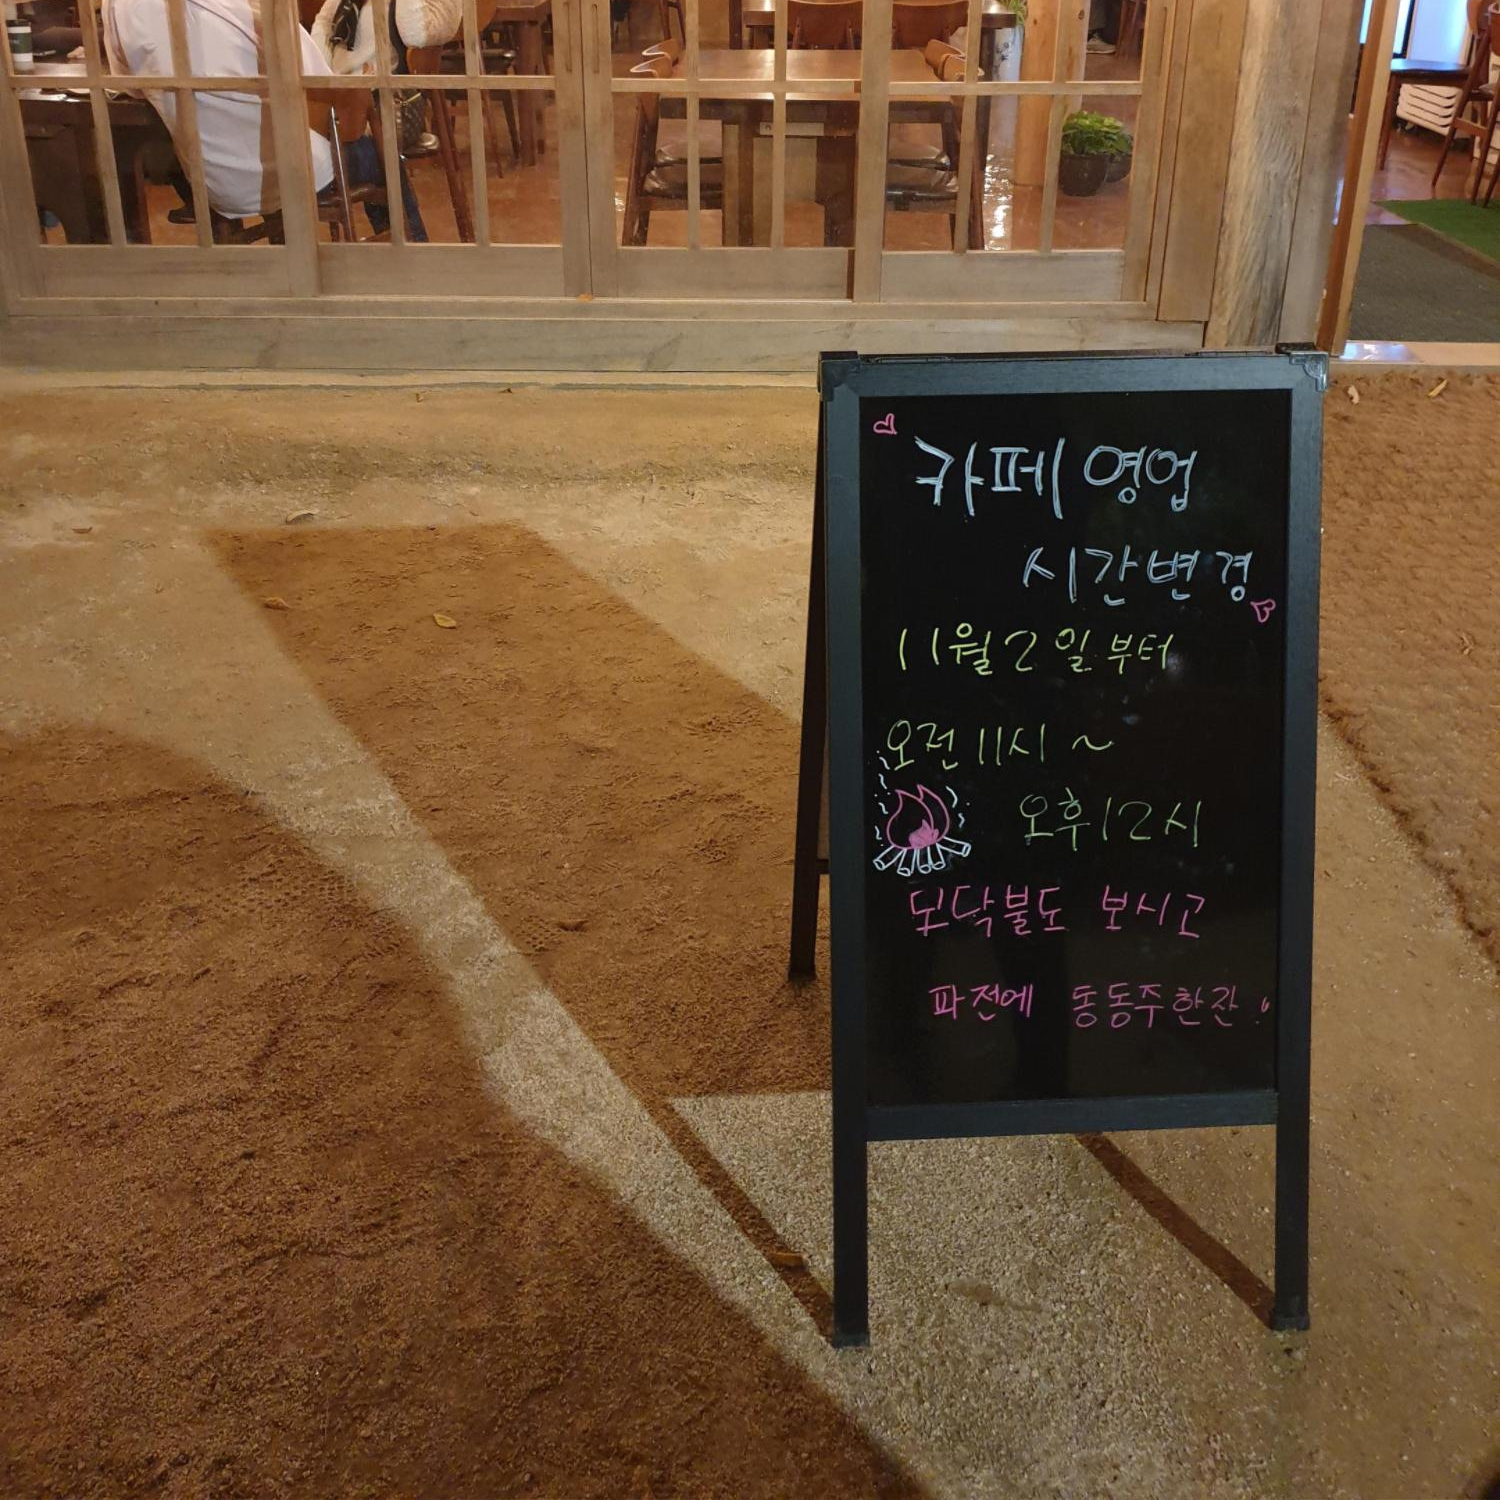 카페 영업
시간변경
11월 2일부터
오전 11시 ~
오후 12시
모닥불도 보시고
파전에 동동주한잔!